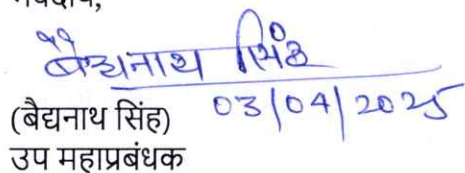 भवदीय,
बैद्यनाथ सिंह
03/04/2025
(बैद्यनाथ सिंह)
उप महाप्रबंधक